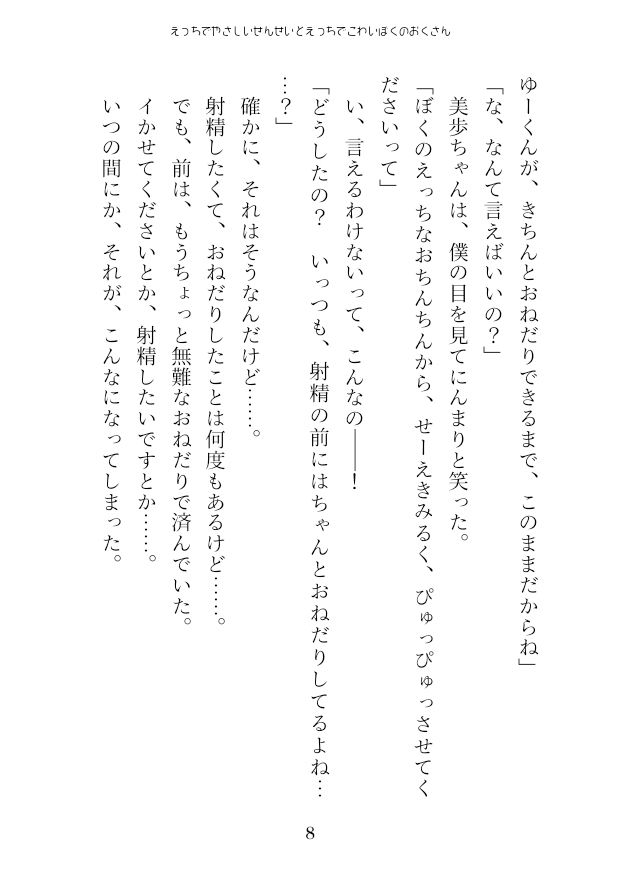 えっちでやさしいせんせいとえっちでこわいぼくのおくさん
ゆーくんが、きちんとおねだりできるまで、このままだからね」
「な、なんて言えばいいの？」
美歩ちゃんは、僕の目を見てにんまりと笑った。
「ぼくのえっちなおちんちんから、せーえきみるく、ぴゅっぴゅっさせてく
ださいって」
い、言えるわけないって、こんなの――！
「どうしたの？　いっつも、射精の前にはちゃんとおねだりしてるよね…
…？」
確かに、それはそうなんだけど……。
射精したくて、おねだりしたことは何度もあるけど……。
でも、前は、もうちょっと無難なおねだりで済んでいた。
イかせてくださいとか、射精したいですとか……。
いつの間にか、それが、こんなになってしまった。
8